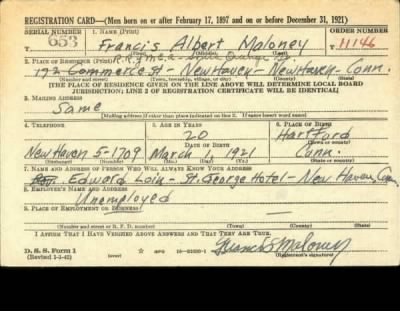 REGISTRATION CARD—(Men born on or after February 17, 1897 and on or before December 31, 1921)
SERIAL NUMBER 1. NAME (Print) ORDER NUMBER
653 Francis Albert Maloney 11146
(First) (Middle) (Last)
R.R.Y.M.C.A.
2. PLACE OF RESIDENCE (Print)
192 Commerce St - New Haven - New Haven - Conn.
(Number and street) (Town, township, village, or city) (County) (State)
[THE PLACE OF RESIDENCE GIVEN ON THE LINE ABOVE WILL DETERMINE LOCAL BOARD
JURISDICTION; LINE 2 OF REGISTRATION CERTIFICATE WILL BE IDENTICAL]
3. MAILING ADDRESS
Same
[Mailing address if other than place indicated on line 2. If same insert word same]
4. TELEPHONE 5. AGE IN YEARS 6. PLACE OF BIRTH
20 Hartford
DATE OF BIRTH (Town or county)
New Haven 5-1709 March 1921 Conn.
(Exchange) (Number) (Mo.) (Day) (Yr.) (State or country)
7. NAME AND ADDRESS OF PERSON WHO WILL ALWAYS KNOW YOUR ADDRESS
Edward - St. George Hotel - New Haven, Conn.
8. EMPLOYER'S NAME AND ADDRESS
Unemployed
9. PLACE OF EMPLOYMENT OR BUSINESS
(Number and street or R. F. D. number) (Town) (County) (State)
I AFFIRM THAT I HAVE VERIFIED ABOVE ANSWERS AND THAT THEY ARE TRUE.
D. S. S. Form 1 GPO Maloney
(Revised 1-1-42) (Registrant's signature)